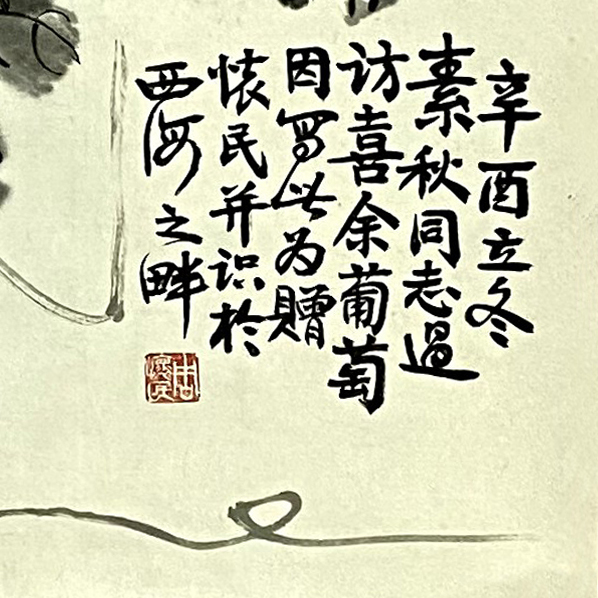 辛酉立冬
素秋同志過
访喜余葡萄
因写此为赠
懐民并识於
西河之畔
周懷民